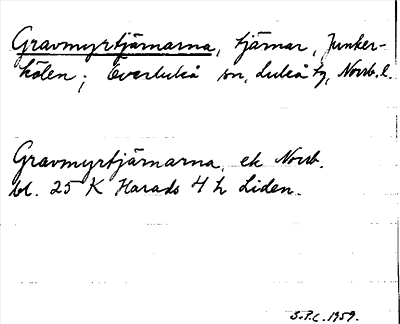 Gravmyrtjärnarna, tjärnar, Junker-
hölen; Överluleå sn, Luleå tg, Norrb. l.
Gravmyrtjärnarna, ek Norrb.
bl. 25 K Harads 4 h Liden.
S.P.C. 1959.